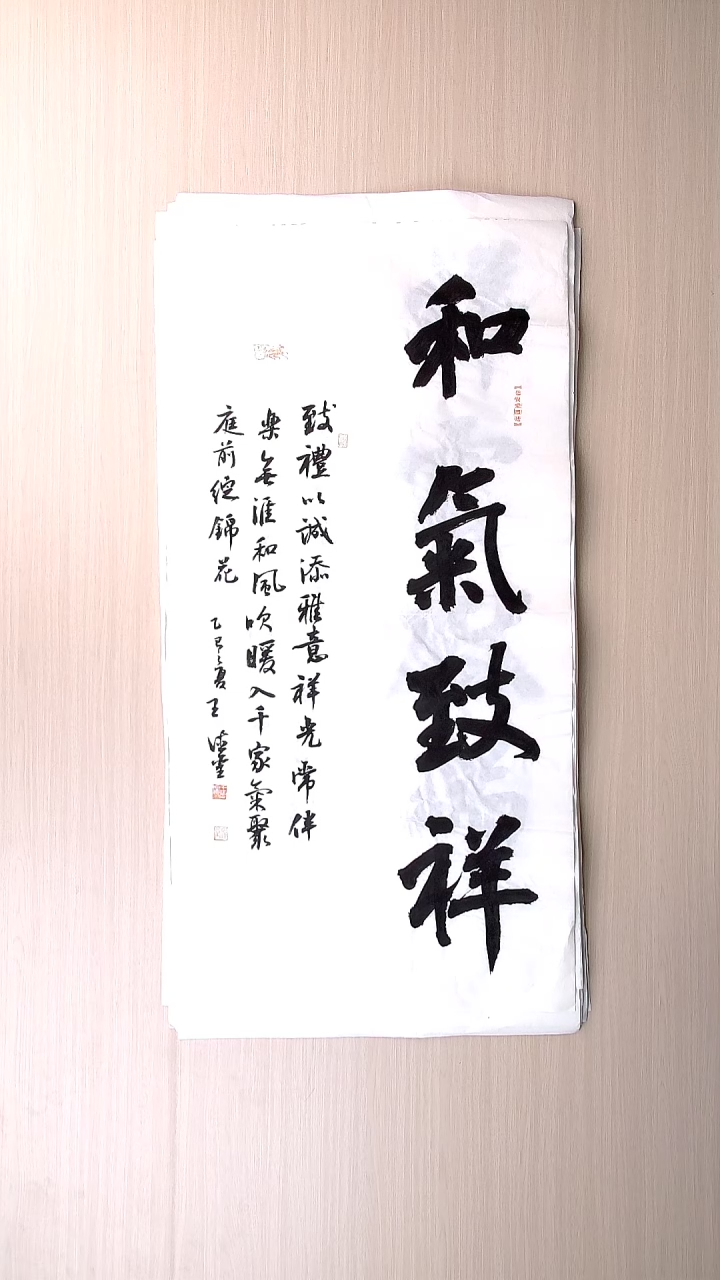 和氣致祥
致禮以誠添雅意祥光常伴
樂無涯和風吹暖入千家氣聚
庭前綻錦花 乙巳夏王